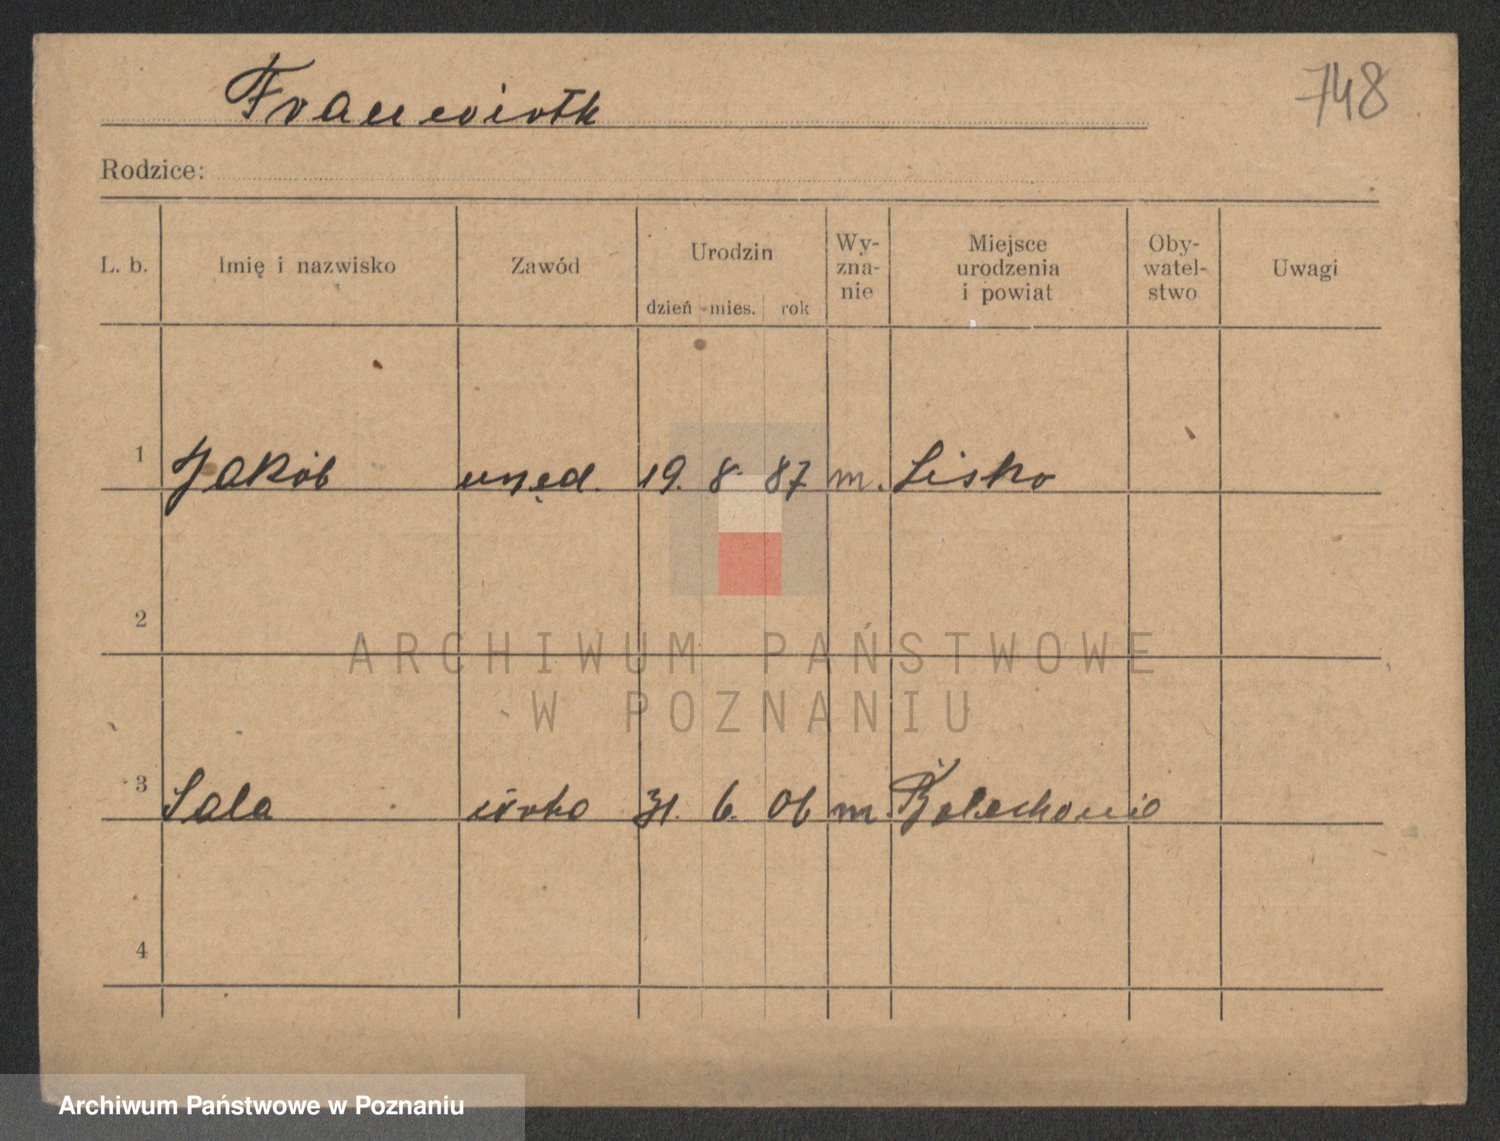 748
Rodzice:
L. b. Imię i nazwisko Zawód Urodzin dzień mies. rok Wy-zna-nie Miejsce urodzenia i powiat Oby-watel-stwo Uwagi
1 Jakób urzęd. 19. 8. 87 m. Lisko
2
ARCHIWUM PAŃSTWOWE
W POZNANIU
3 Sala córka 31. 6. 06 m.
4
Archiwum Państwowe w Poznaniu